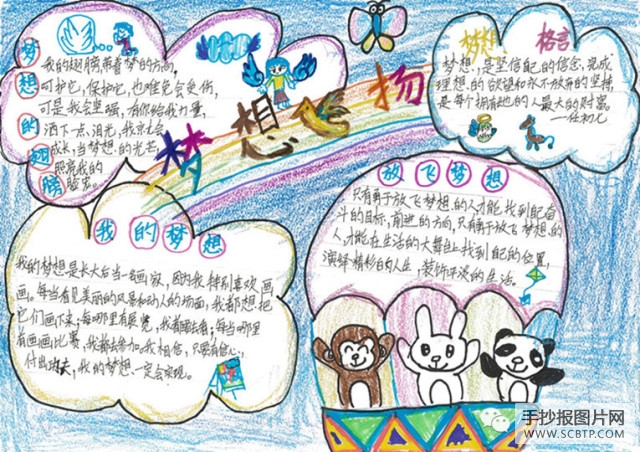 梦想的翅膀
我的翅膀,带着梦的方向,
可护它,保护它,也难免会受伤,
可是我会坚强,有你给我力量,
洒下一点泪光,我就会
成长,当梦想的光芒,
照亮我的
脸旁。
梦想飞扬
梦想格言
梦想,是坚信自己的信念,完成
理想的欲望和永不放弃的坚持,
是每个拥有她的人最大的财富。
—任初七
放飞梦想
只有勇于放飞梦想的人才能找到自己奋
斗的目标,前进的方向,只有勇于放飞梦想的
人,才能在生活的大舞台上找到自己的位置,
演绎精彩的人生,装饰平淡的生活。
我的梦想
我的梦想是长大后当一名画家,因为我特别喜欢画
画。每当看见美丽的风景和动人的场面,我都想把
它们画下来;每哪里有展览,我都去看;每当哪里
有画画比赛,我都去参加。我相信,只要有信心,
付出功夫,我的梦想一定会实现。
手抄报图片网
WWW.SCBTP.COM